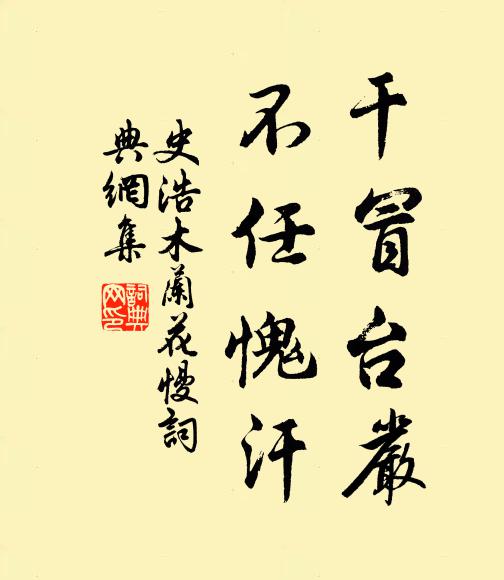 干冒台嚴
不任愧汗
史浩木蘭花慢詞
典網集
詞典網印